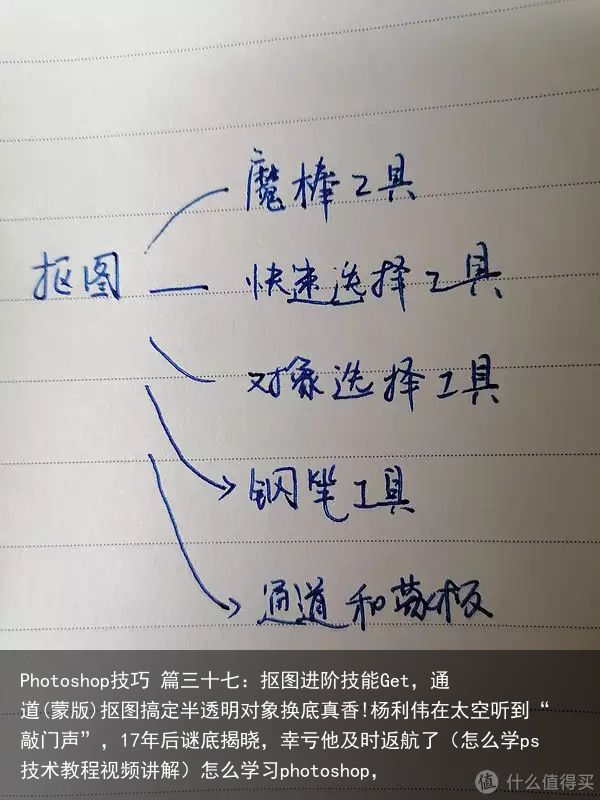 魔棒工具
抠图
快速选择工具
对象选择工具
钢笔工具
通道和蒙板
Photoshop技巧 篇三十七：抠图进阶技能Get，通
道(蒙版)抠图搞定半透明对象换底真香!杨利伟在太空听到“
敲门声”，17年后谜底揭晓，幸亏他及时返航了（怎么学ps
技术教程视频讲解）怎么学习photoshop，
值 什么值得买